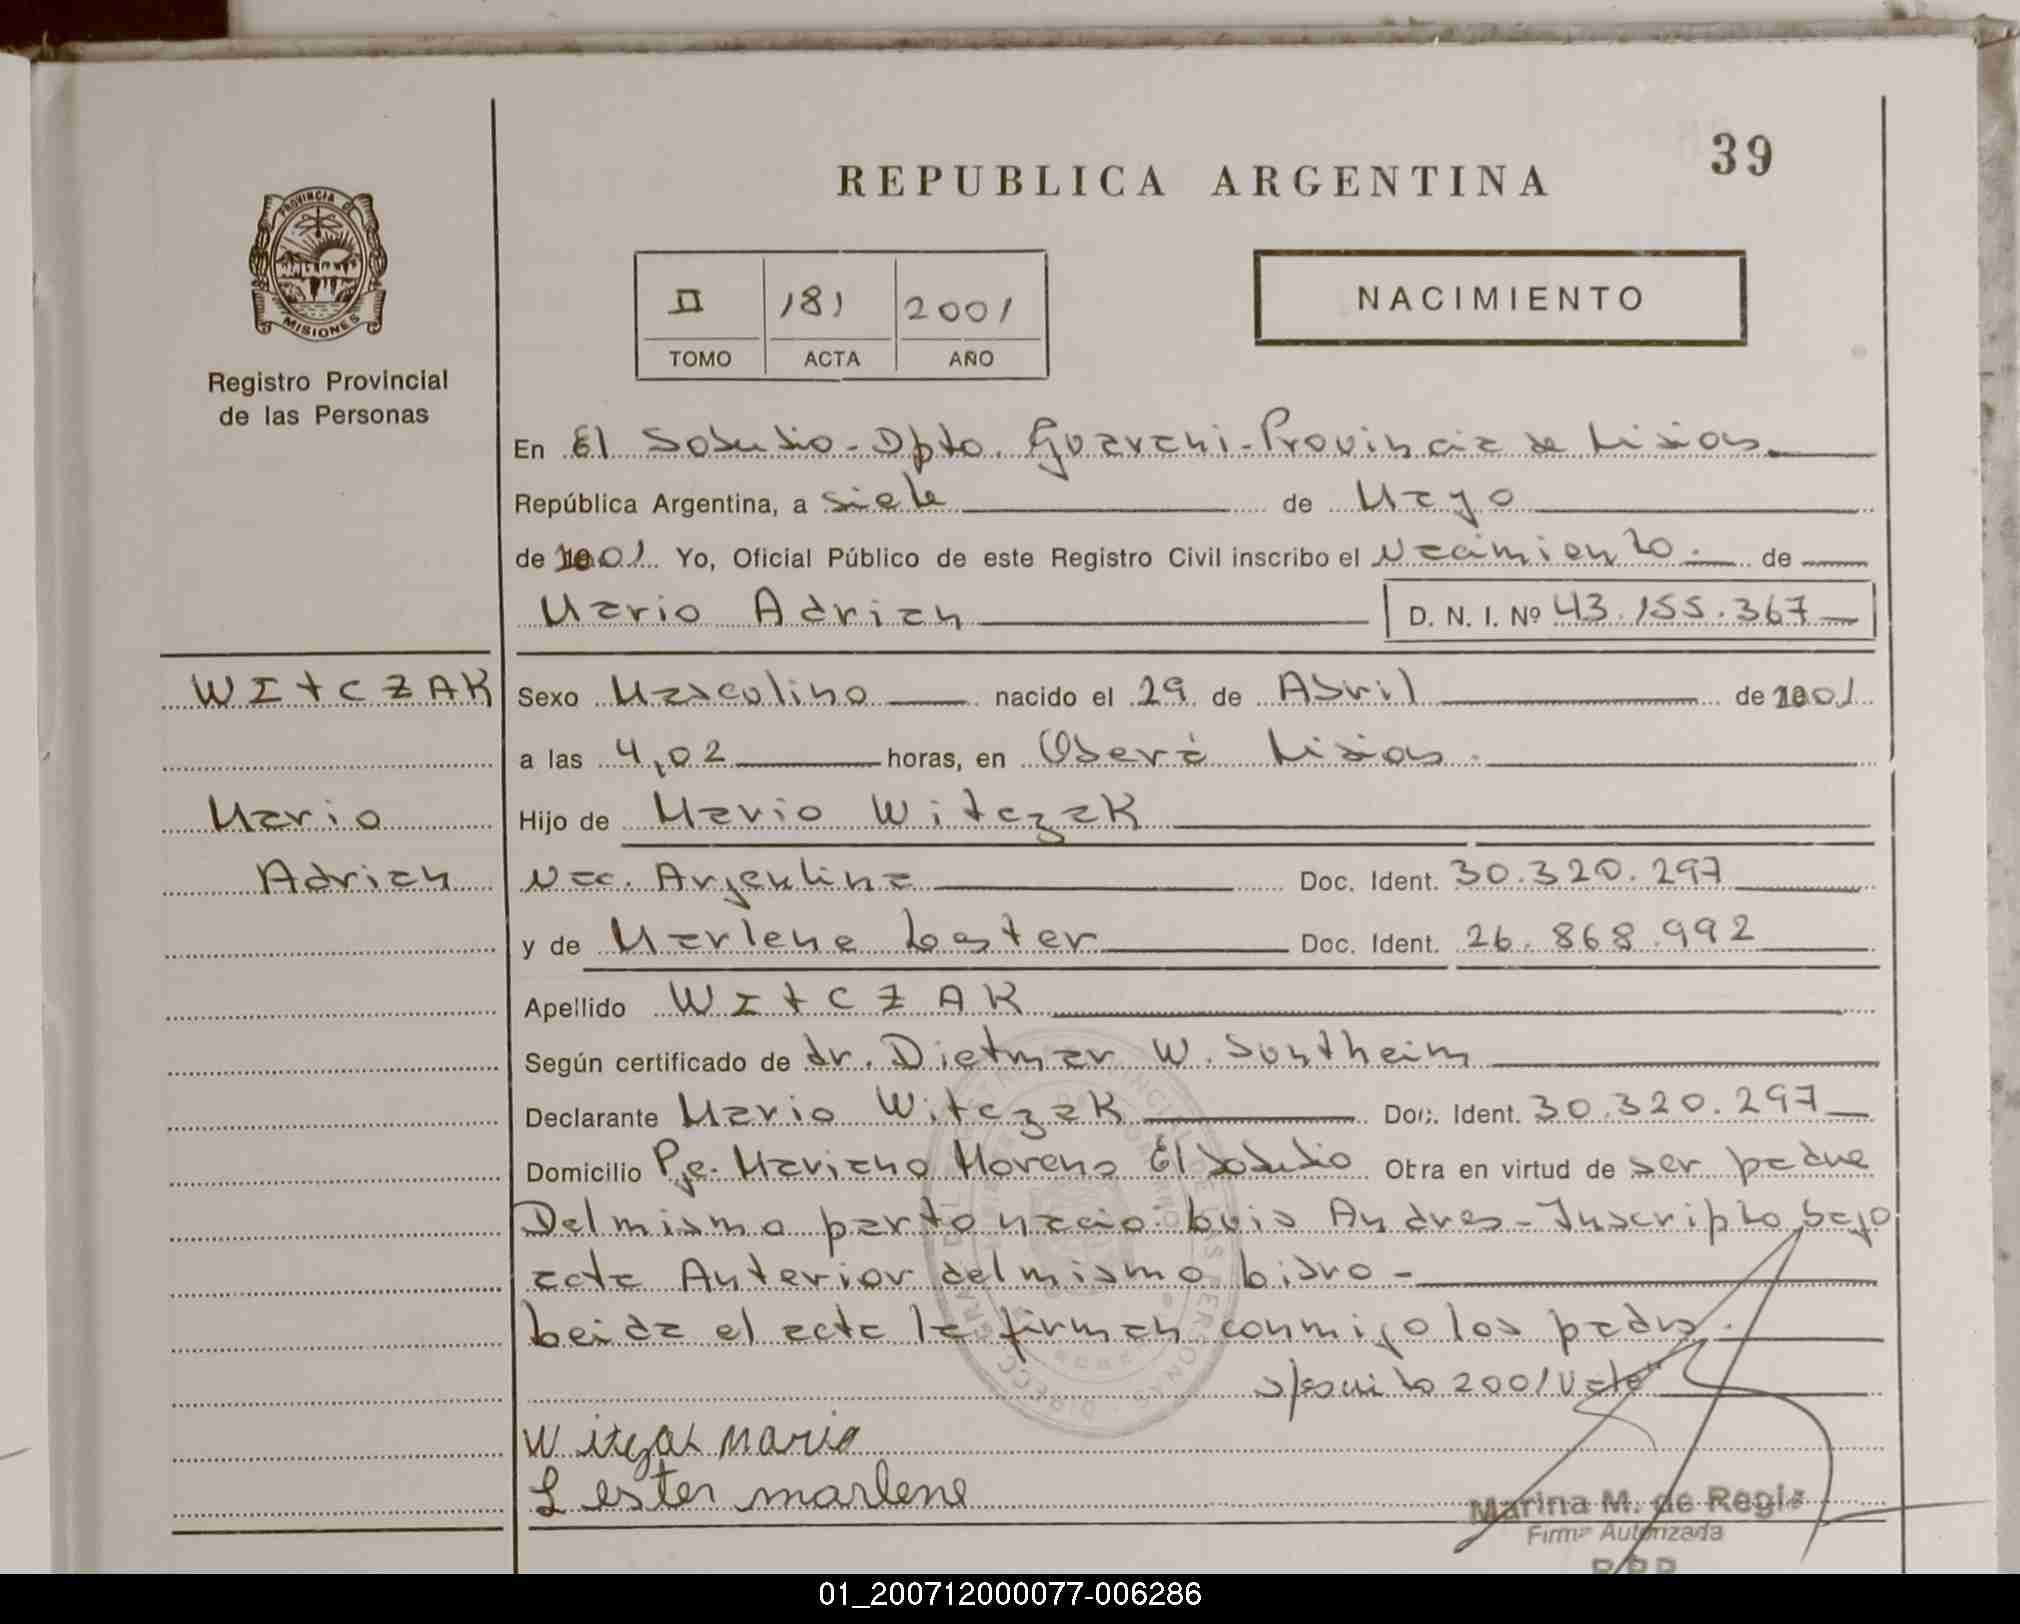 39
REPUBLICA ARGENTINA
PROVINCIA DE
MISIONES
Registro Provincial
de las Personas
II 181 2001
TOMO ACTA AÑO
NACIMIENTO
En El Soberbio - Dpto. Guarani - Provincia de Misiones
República Argentina, a siete de Mayo
de 2001 Yo, Oficial Público de este Registro Civil inscribo el Nacimiento de
Mario Adrian D. N. I. Nº 43.155.367
WITCZAK
Mario
Adrian
Sexo Masculino nacido el 29 de Abril de 2001
a las 4,02 horas, en Oberá Misiones.
Hijo de Mario Witczak
Nac. Argentina Doc. Ident. 30.320.297
y de Marlene Lester Doc. Ident. 26.868.992
Apellido WITCZAK
Según certificado de dr. Dietmar W. Sontheim
Declarante Mario Witczak Doc. Ident. 30.320.297
Domicilio Pje. Mariano Moreno El Soberbio Obra en virtud de ser padre
Del mismo parto nacio Luis Andres - Inscripto bajo
acta Anterior del mismo Libro -
Leida el acta la firman conmigo los padres.
s/escrito 2001 Vale
Witczak Mario
Lester marlene
Marina M. de Regis
Firma Autorizada
01_200712000077-006286